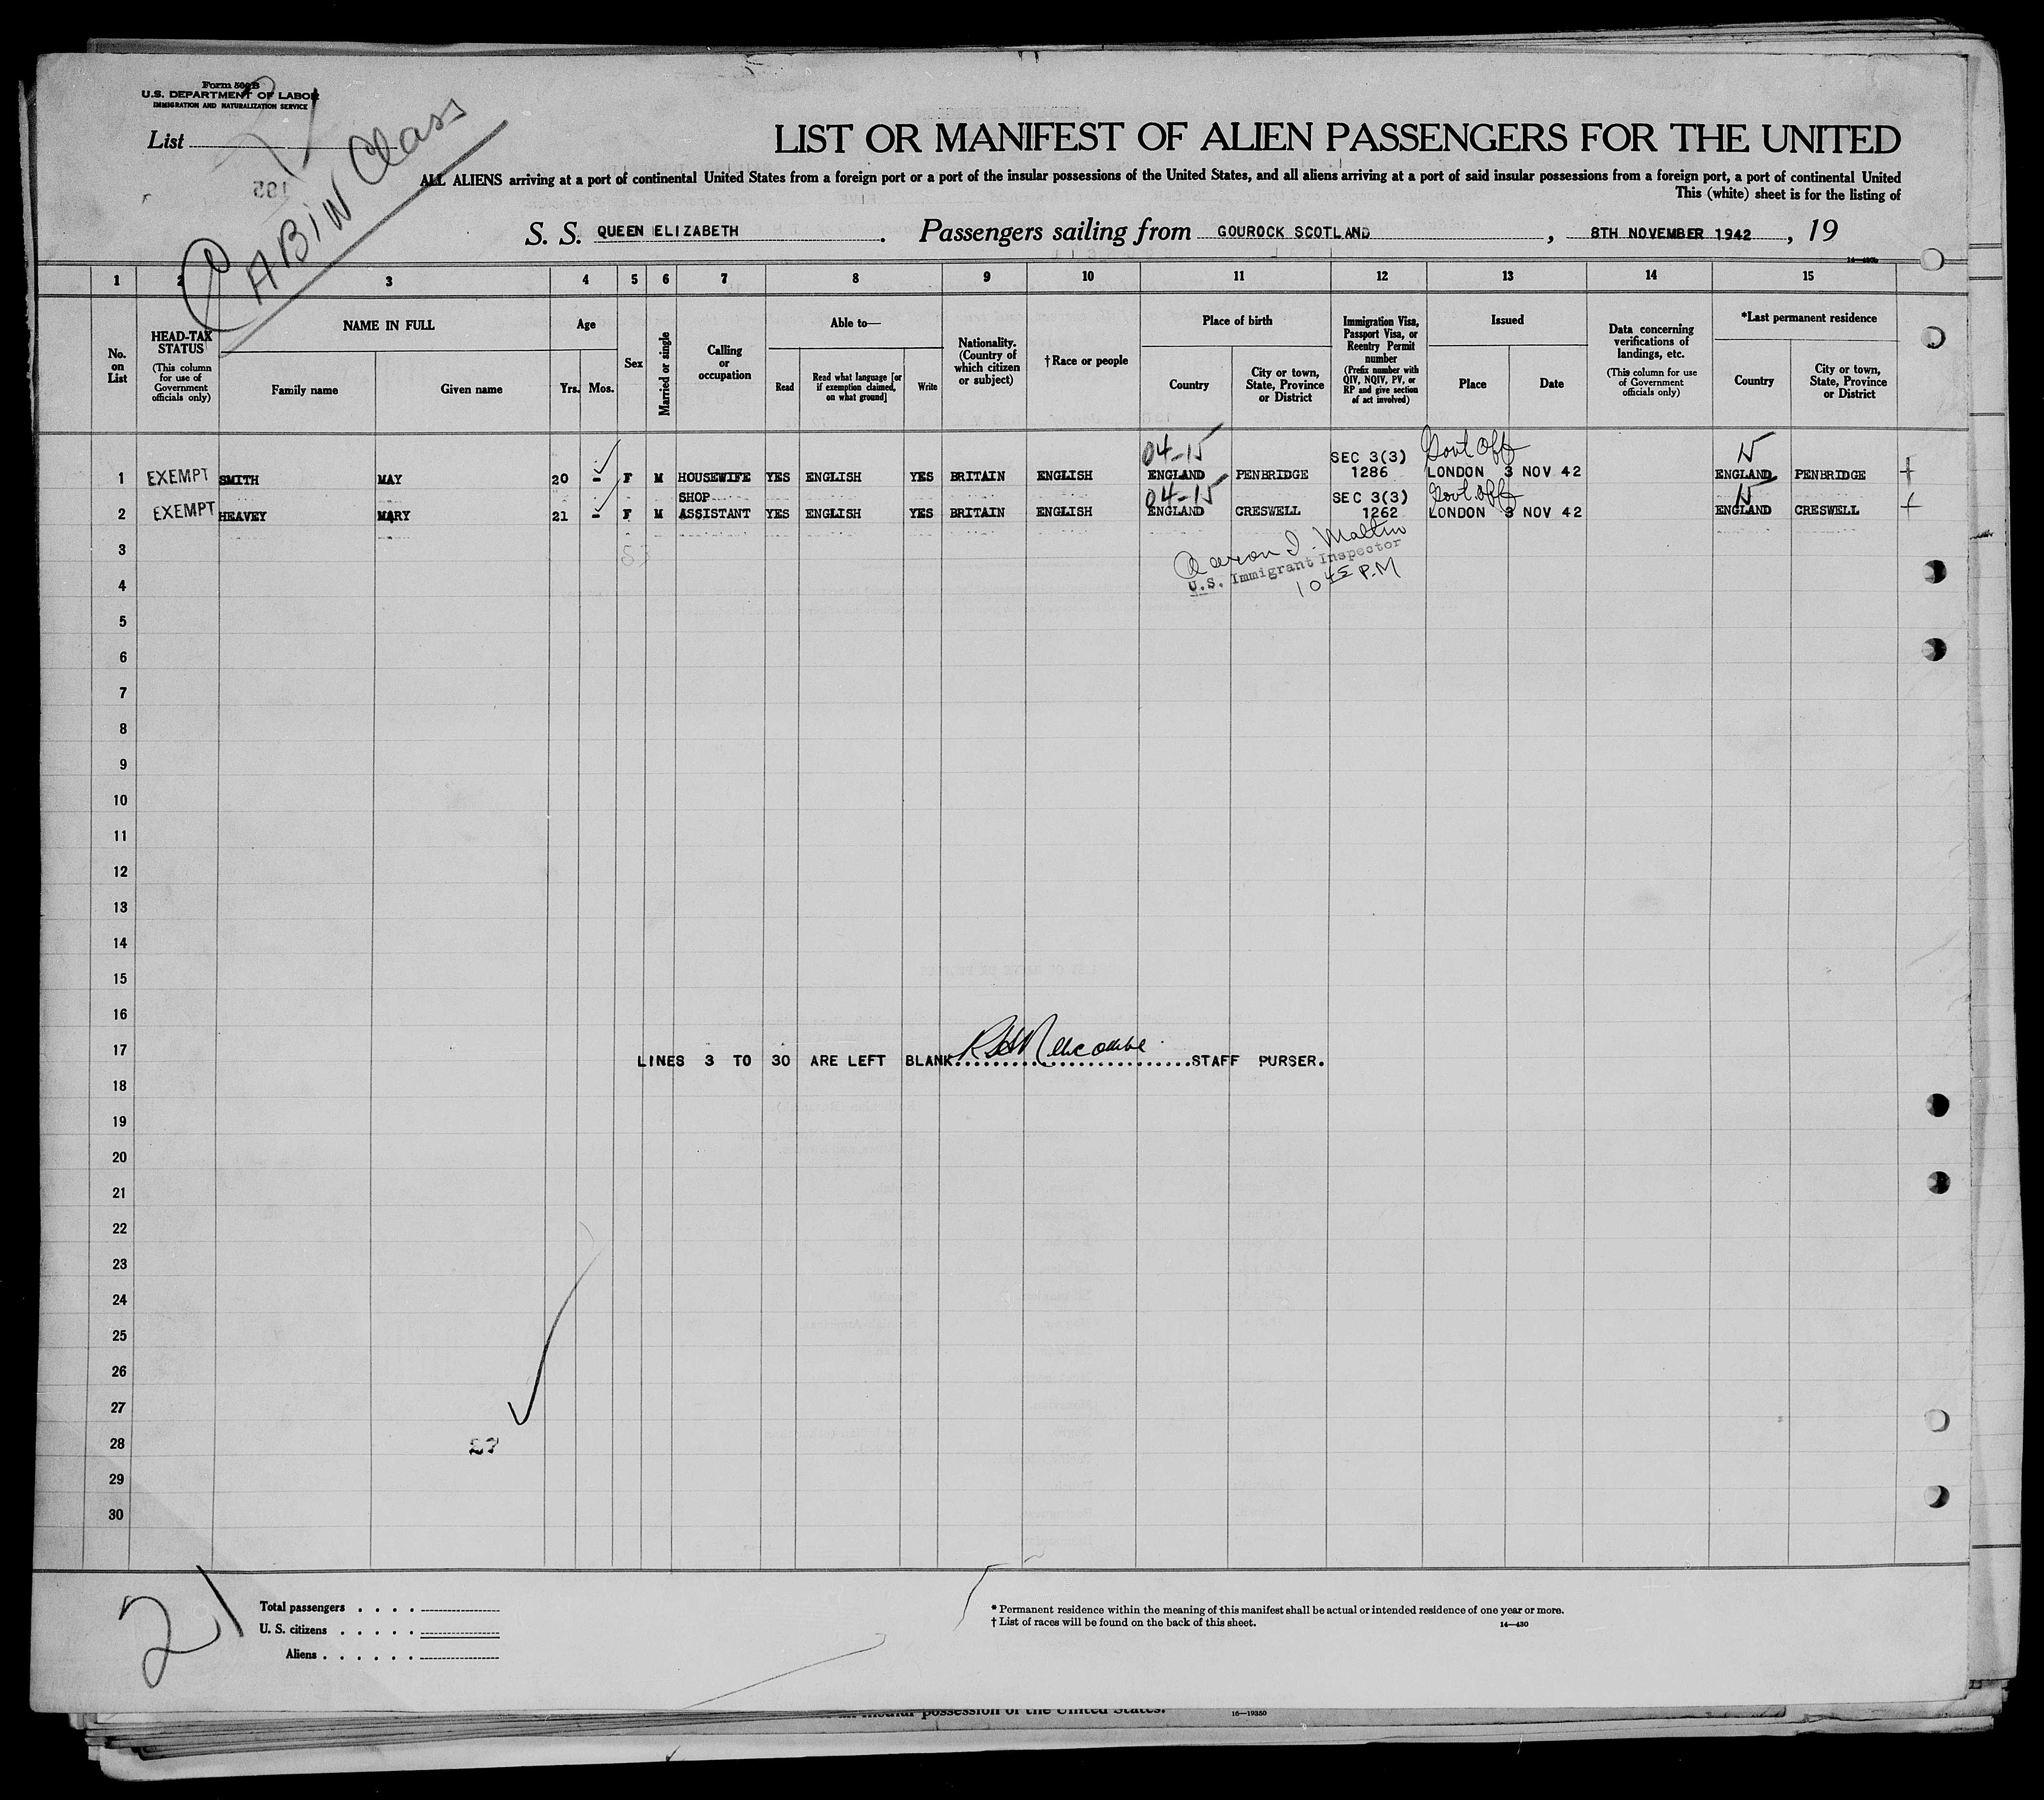 Form 500B
U.S. DEPARTMENT OF LABOR
IMMIGRATION AND NATURALIZATION SERVICE
List
CABIN Class
LIST OR MANIFEST OF ALIEN PASSENGERS FOR THE UNITED
ALL ALIENS arriving at a port of continental United States from a foreign port or a port of the insular possessions of the United States, and all aliens arriving at a port of said insular possessions from a foreign port, a port of continental United
This (white) sheet is for the listing of
S. S. QUEEN ELIZABETH . Passengers sailing from GOUROCK SCOTLAND , 8TH NOVEMBER 1942 , 19
1 2 3 4 5 6 7 8 9 10 11 12 13 14 15
No. on List
HEAD-TAX STATUS
(This column for use of Government officials only)
NAME IN FULL
Family name
Given name
Age
Yrs.
Mos.
Sex
Married or single
Calling or occupation
Able to—
Read
Read what language [or if exemption claimed, on what ground]
Write
Nationality. (Country of which citizen or subject)
†Race or people
Place of birth
Country
City or town, State, Province or District
Immigration Visa, Passport Visa, or Reentry Permit number
(Prefix number with QIV, NQIV, PV, or RP and give section of act involved)
Issued
Place
Date
Data concerning verifications of landings, etc.
(This column for use of Government officials only)
*Last permanent residence
Country
City or town, State, Province or District
04-15 SEC 3(3) Govt Off
1 EXEMPT SMITH MAY 20 - F M HOUSEWIFE YES ENGLISH YES BRITAIN ENGLISH ENGLAND PENBRIDGE 1286 LONDON 3 NOV 42 ENGLAND PENBRIDGE
SHOP 04-15 SEC 3(3) Govt Off
2 EXEMPT HEAVEY MARY 21 - F M ASSISTANT YES ENGLISH YES BRITAIN ENGLISH ENGLAND CRESWELL 1262 LONDON 3 NOV 42 ENGLAND CRESWELL
3
Aaron I. Maltin
U.S. Immigrant Inspector
10 45 P.M
4
5
6
7
8
9
10
11
12
13
14
15
16
17
LINES 3 TO 30 ARE LEFT BLANK..........................STAFF PURSER.
18
19
20
21
22
23
24
25
26
27
28
29
30
21
Total passengers . . . .
U. S. citizens . . . . .
Aliens . . . . . .
* Permanent residence within the meaning of this manifest shall be actual or intended residence of one year or more.
† List of races will be found on the back of this sheet.
14—430
possession of the United States.
16—19350